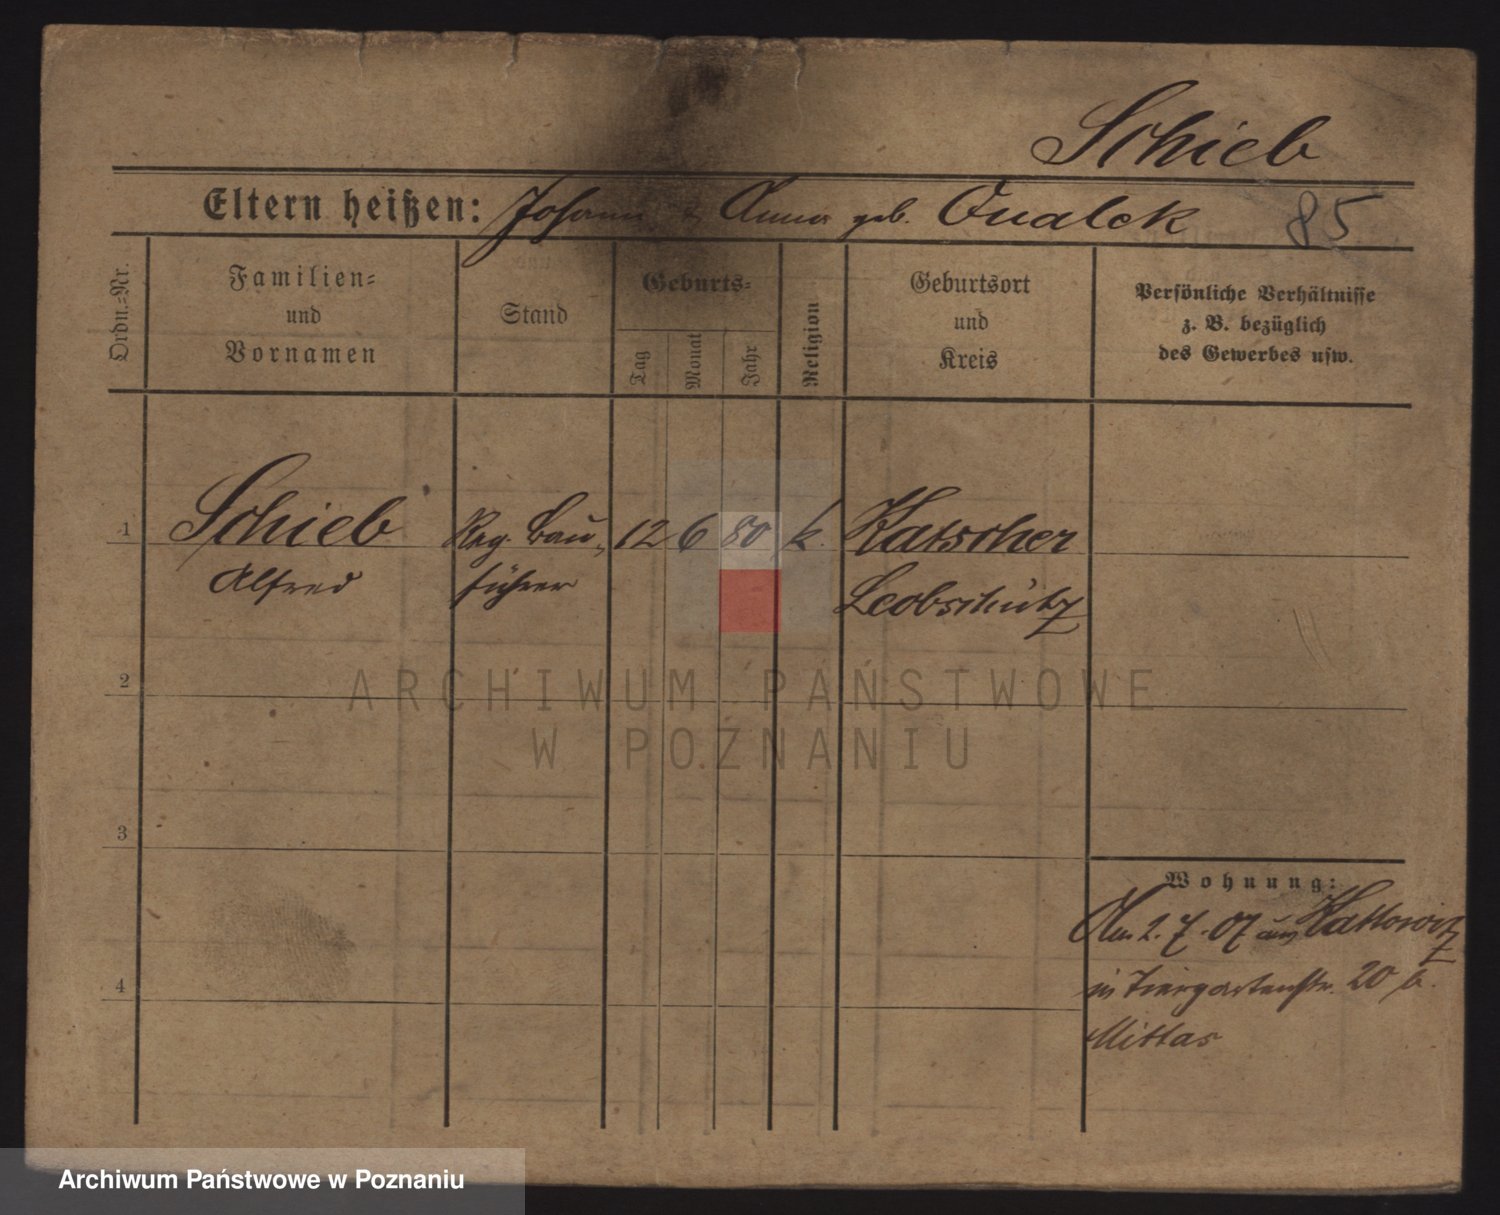 Schieb
Eltern heißen: Johann & Anna geb. Qualek 85
Ordn.-Nr.
Familien-
und
Vornamen
Stand
Geburts-
Tag
Monat
Jahr
Religion
Geburtsort
und
Kreis
Persönliche Verhältnisse
z. B. bezüglich
des Gewerbes usw.
1 Schieb Reg. Bau- 12 6 80 k. Katscher
Alfred führer Leobschütz
2
ARCHIWUM PAŃSTWOWE
W POZNANIU
3
Wohnung:
Am 2. 7. 07 aus Kattowitz
in Tiergartenstr. 20 b.
Mittas
4
Archiwum Państwowe w Poznaniu